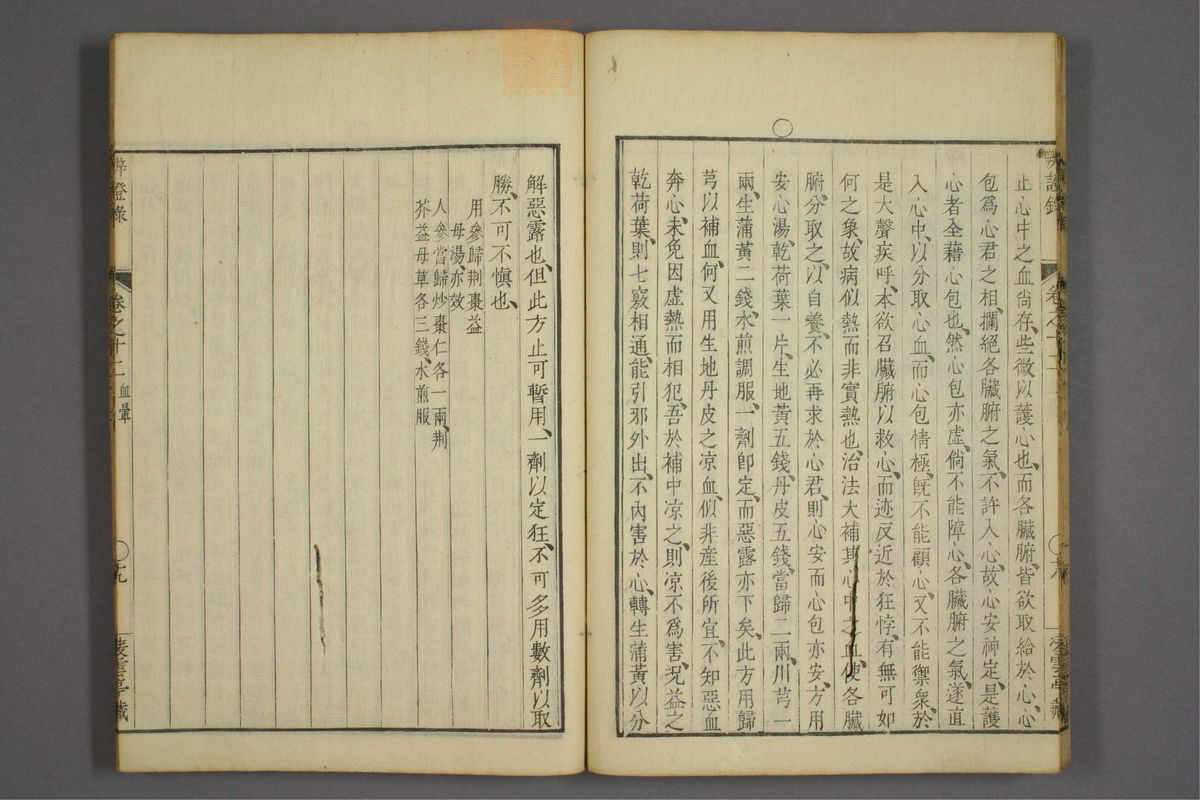 止心中之血尙存、些微以護心也、而各臟腑、皆欲取給於心、心
包爲心君之相、攔絕各臟腑之氣、不許入心、故心安神定、是護
心者全藉心包也、然心包亦虛、倘不能障心、各臟腑之氣、遂直
入心中、以分取心血、而心包情極、旣不能顧心、又不能禦衆、於
是大聲疾呼、本欲召臟腑以救心、而迹反近於狂悖、有無可如
何之象、故病似熱而非實熱也、治法大補其心中之血、使各臟
腑、分取之、以自養、不必再求於心君、則心安而心包亦安、方用
安心湯、乾荷葉一片、生地黃五錢、丹皮五錢、當歸二兩、川芎一
兩、生蒲黃二錢、水煎調服、一劑卽定、而惡露亦下矣、此方用歸
芎以補血、何又用生地丹皮之凉血、似非産後所宜、不知惡血
奔心、未免因虛熱而相犯、吾於補中凉之、則凉不爲害、况益之
乾荷葉、則七竅相通、能引邪外出、不內害於心、轉生蒲黃以分
解惡露也、但此方止可暫用、一劑以定狂、不可多用數劑以取
勝、不可不愼也、
用參歸荆棗益
母湯、亦效
人參當歸炒棗仁各一兩、荆
芥益母草各三錢、水煎服
證錄
卷之十二
血暈
九
凌雲亭藏